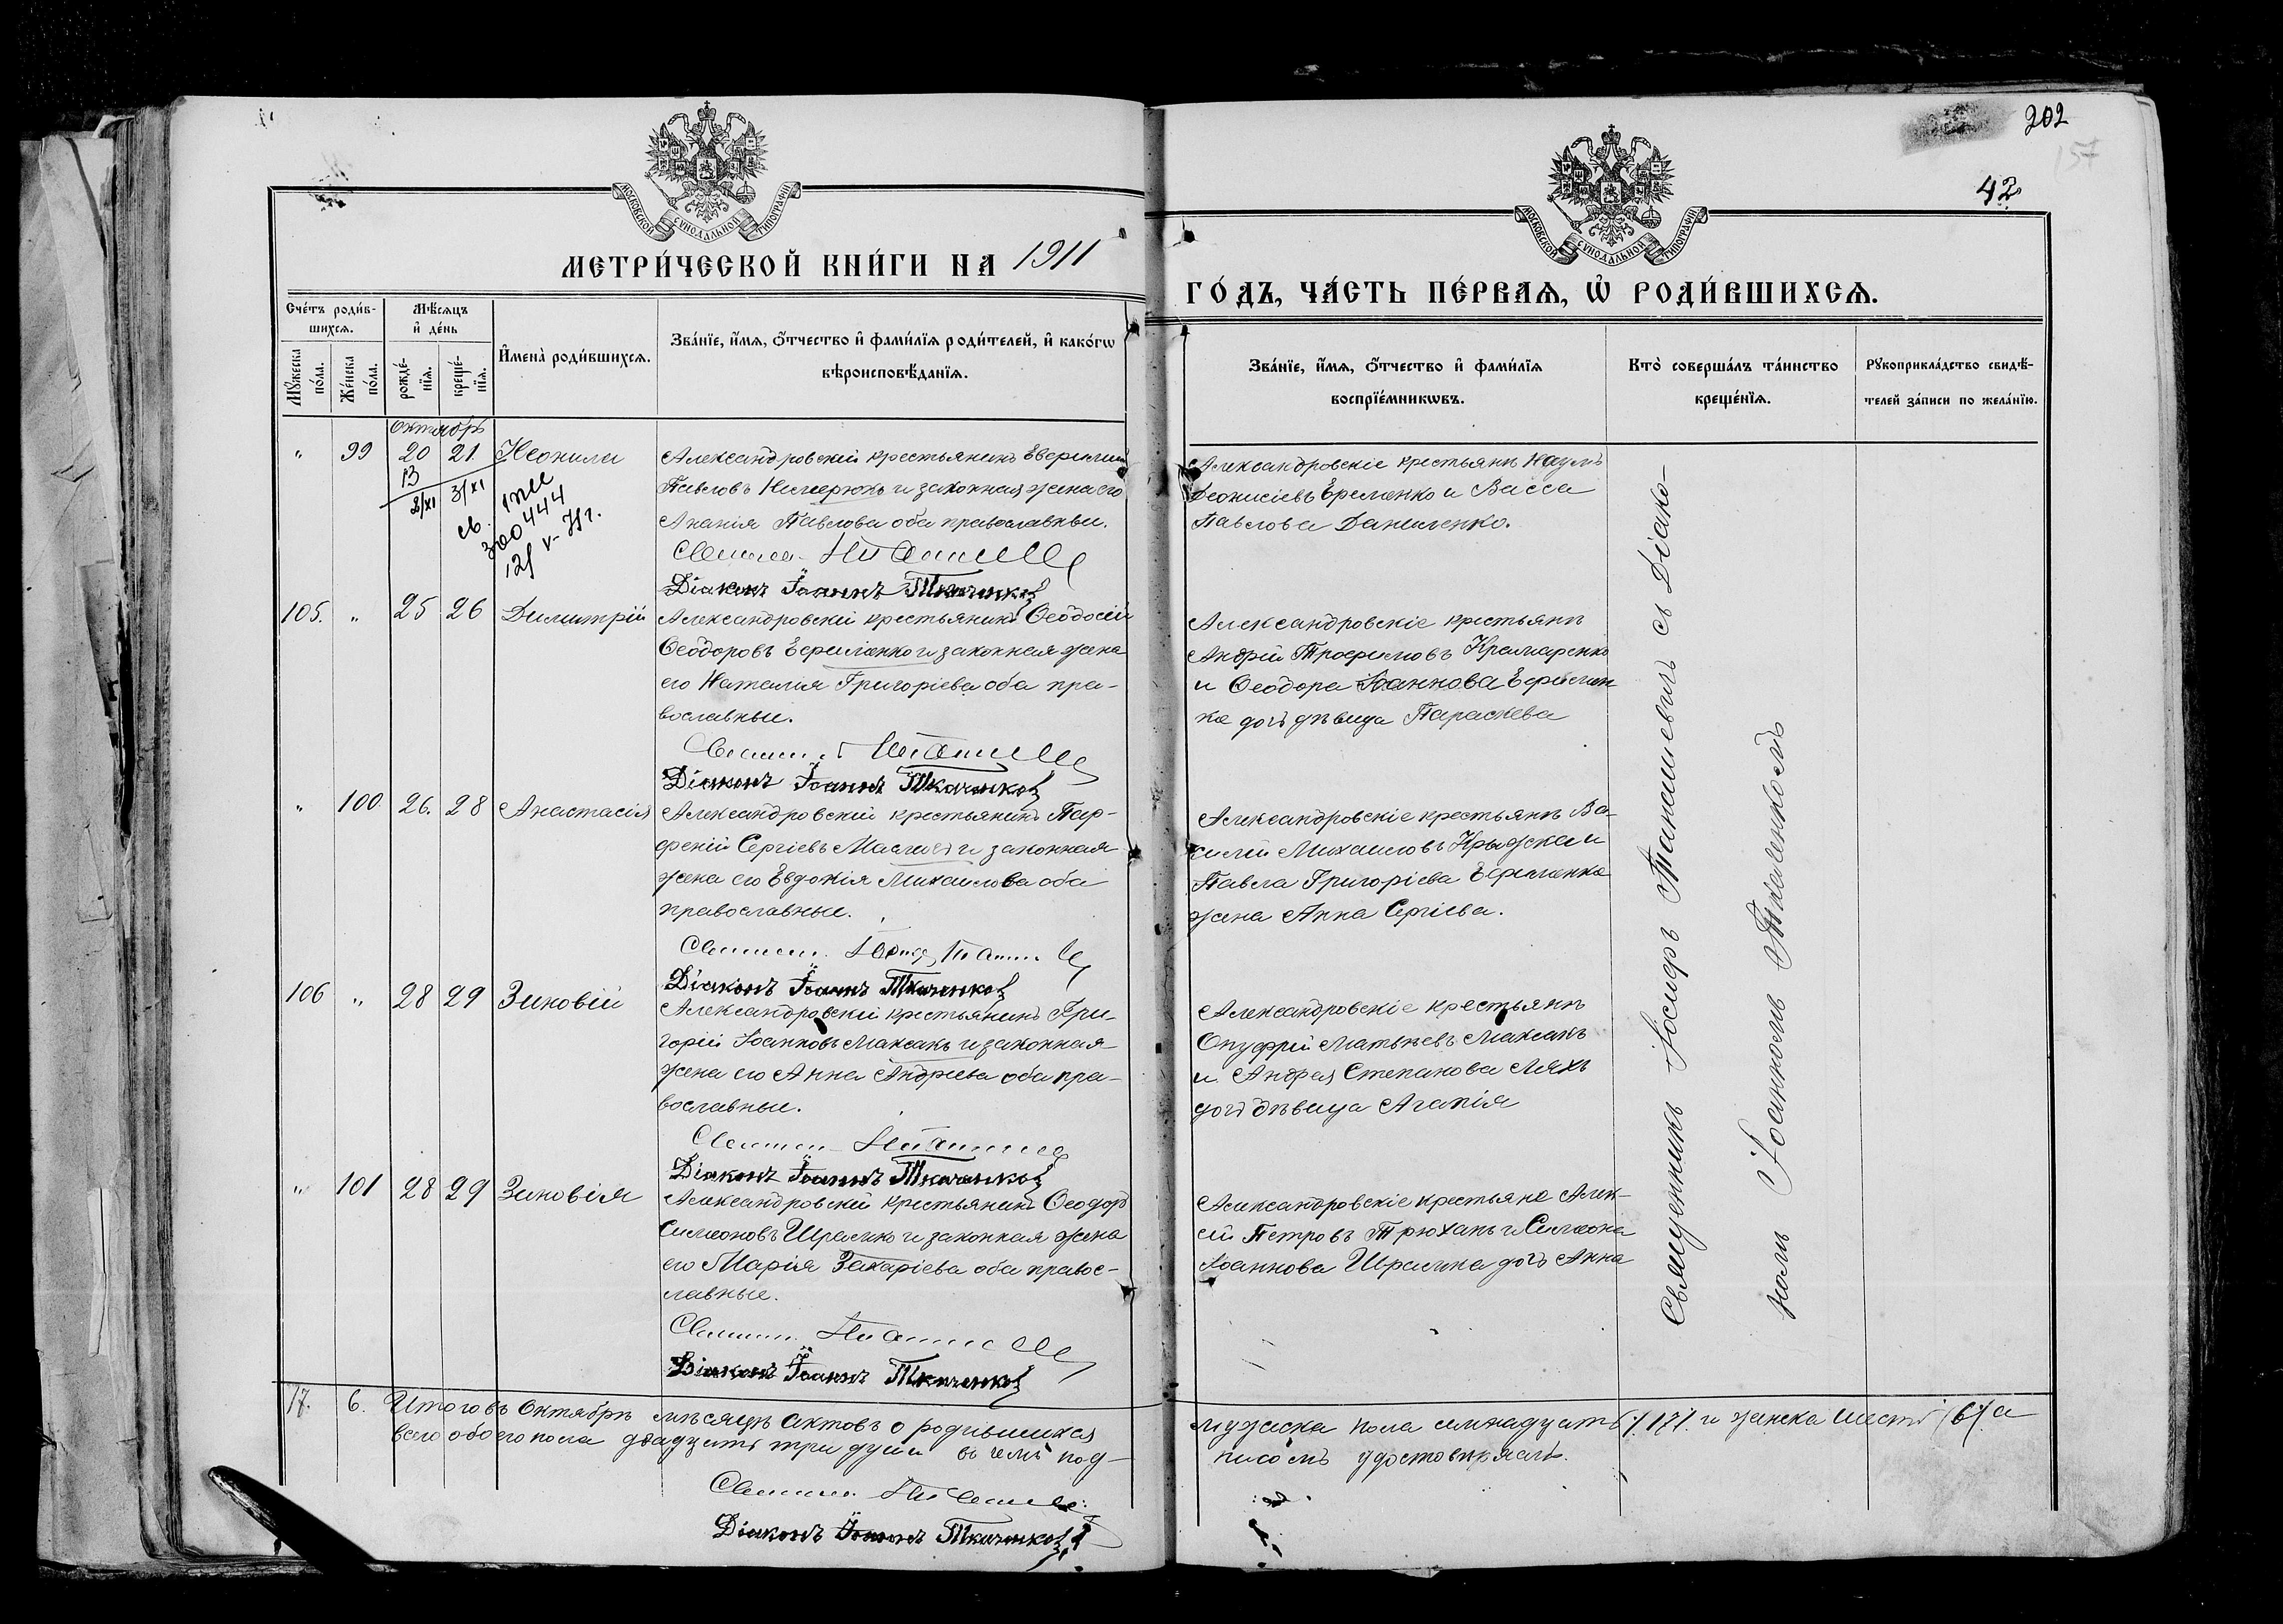 202
157
42
МОСКОВСКОЙ СУНОДАЛЬНОЙ ТИПОГРАФІИ
МОСКОВСКОЙ СУНОДАЛЬНОЙ ТИПОГРАФІИ
МЕТРИ́ЧЕСКОЙ КНИ́ГИ НА 1911
ГО́ДЪ, ЧА́СТЬ ПЕ́РВАѦ, Ѡ҆ РОДИ́ВШИХСѦ.
Сче́тъ роди́в-
шихсѧ.
Мꙋ́жеска по́ла.
Же́нска по́ла.
Мѣ́сѧцъ
и҆ де́нь
рожде́-
нїѧ.
креще́-
нїѧ.
И҆мена̀ роди́вшихсѧ.
Зва́нїе, и҆́мѧ, ѻ҆́тчество и҆ фами́лїѧ роди́телей, и҆ како́гѡ
вѣроисповѣ́данїѧ.
Зва́нїе, и҆́мѧ, ѻ҆́тчество и҆ фами́лїѧ
воспрїе́мникѡвъ.
Кто̀ соверша́лъ та́инство
креще́нїѧ.
Рꙋкоприкла́дство свидѣ́-
телей за́писи по жела́нїю.
Октябрь
" 99 20 21. Неонила
13
2/XI 3/XI
св.
300444
Александровскій крестьянинъ
Павловъ и законная жена его
Павлова оба православные.
Діаконъ Іоаннъ Ткаченко
Александровскіе крестьяне Наумъ
Леонисіевъ Еременко и Васса
Павлова Даниленко.
105. " 25 26 Димитрій
Александровскій крестьянинъ Ѳеодосій
Ѳеодоровъ Ефименко и законная жена
его Наталія Григоріева оба пра-
вославные.
Діаконъ Іоаннъ Ткаченко
Александровскіе крестьяне
Андрій Трофимовъ Крамаренко
и Ѳеодора Іоаннова Ефимен-
ка дочь дѣвица Параскева
" 100. 26. 28 Анастасія
Александровскій крестьянинъ Пар-
феній Сергіевъ и законная
жена его Евдокія Михаилова оба
православные.
Діаконъ Іоаннъ Ткаченко
Александровскіе крестьяне Ва-
силій Михаиловъ и
Павла Григоріева Ефименка
жена Анна Сергіева.
106 " 28 29 Зиновій
Александровскій крестьянинъ Гри-
горій Іоанновъ Максакъ и законная
жена его Анна Андреева оба пра-
вославные.
Діаконъ Іоаннъ Ткаченко
Александровскіе крестьяне
Онуфрій Матвѣевъ Максакъ
и Андрея Степанова Ляхъ
дочь дѣвица Агапія
" 101 28 29 Зиновія
Александровскій крестьянинъ Ѳеодоръ
Симеоновъ Шрамко и законная жена
его Марія Захаріева оба правос-
лавные.
Діаконъ Іоаннъ Ткаченко
Александровскіе крестьяне Алек-
сій Петровъ Трюханъ и Симеона
Іоаннова Шрамка дочь Анна
Священникъ Іосифъ съ Діако-
номъ Іоанномъ Ткаченкомъ
17. 6. Итого въ Октябрѣ мѣсяцѣ актовъ о родившихся
мужеска пола семнадцать /17/. и женска шесть /6/. а
всего обоего пола двадцать три души въ чемъ под-
писомъ удостовѣряемъ.
Діаконъ Іоаннъ Ткаченко